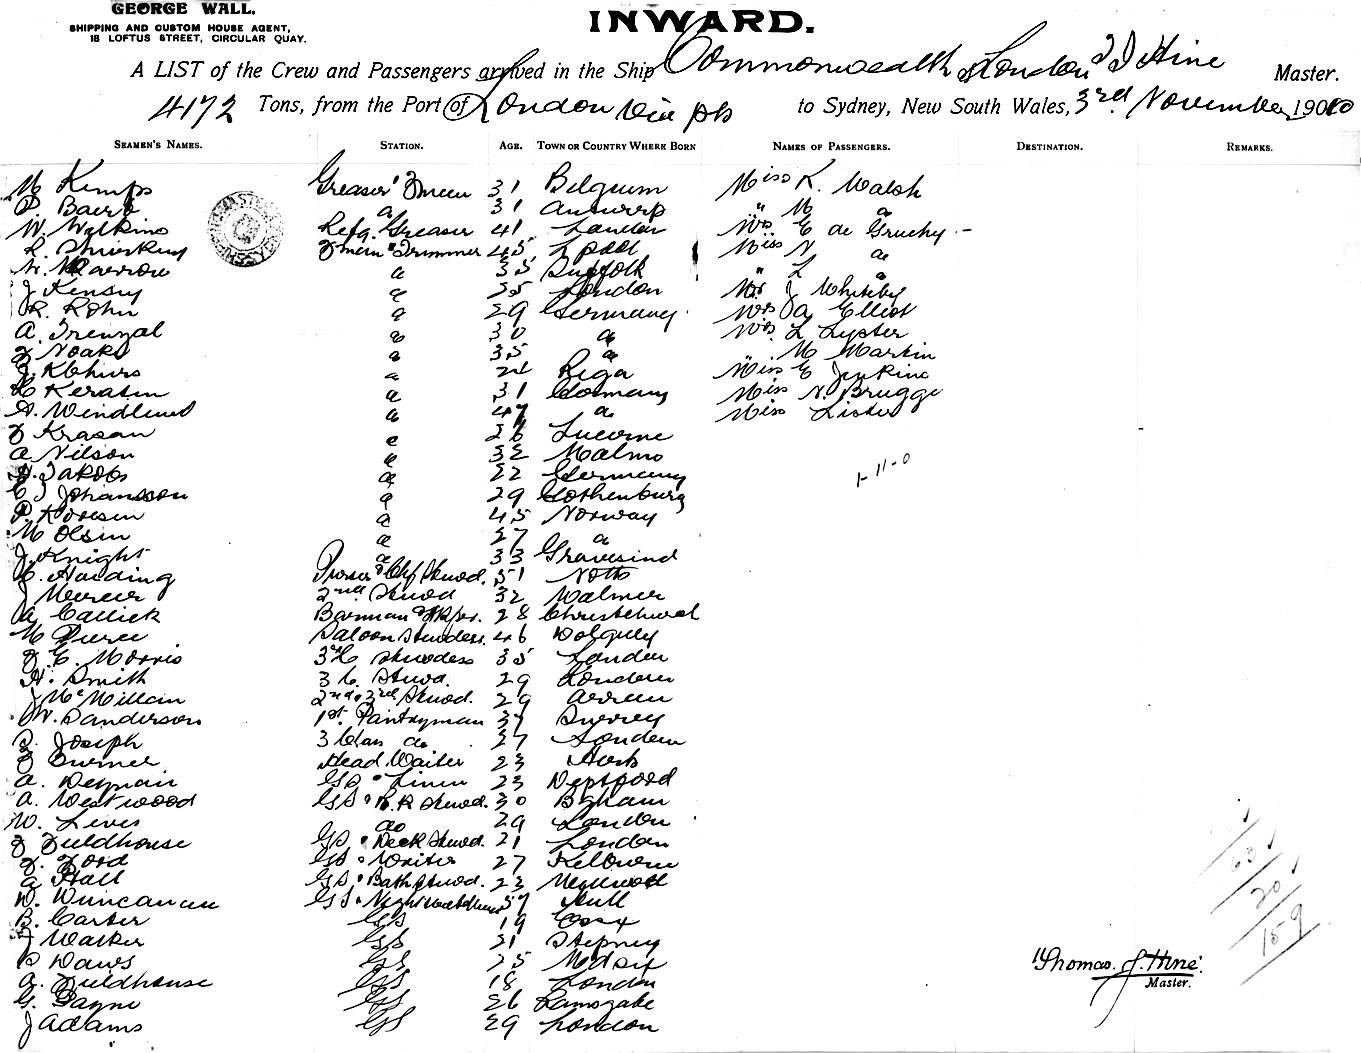 GEORGE WALL.
SHIPPING AND CUSTOM HOUSE AGENT,
18 LOFTUS STREET, CIRCULAR QUAY.
INWARD.
A LIST of the Crew and Passengers arrived in the Ship Commonwealth of London T J Hine Master.
4172 Tons, from the Port of London via pts to Sydney, New South Wales, 3rd November 1900
SEAMEN'S NAMES. STATION. AGE. TOWN OR COUNTRY WHERE BORN NAMES OF PASSENGERS. DESTINATION. REMARKS.
M Kemps Greaser & Fman 31 Belgium Miss K. Walsh
P Baert 31 Antwerp " M
W. Watkins Refg. Greaser 41 London Mrs E de Gruchy
Fman & Trimmer 45 L'pool Miss
35 Suffolk " L
J Kensey 25 London J Whiteby
R. Rohn 29 Germany Mrs A Elliot
A. Frenzal 30 Mrs L Lyster
Noaks 35 " M Martin
24 Riga Miss E Jenkins
Kerstin 31 Germany Miss N. Brugge
A. Windlund 47 Miss Lister
Krasan 26 Lucerne
A Nilson 32 Malmo
H. Jakobs 22 Germany
C J Johansson 29 Gothenburg
45 Norway
M Olsen 27
J. Knight 33 Gravesend
C. Harding Purser & Chf Stewd. 51 Notts
J Mercer 2nd Stewd 32 Walmer
A Callick Barman 28 Christchurch
M Pierce Saloon Stewdess. 46 Dolgelly
E. Morris 3rd C Stewdess 35 London
H. Smith 3 C. Stewd. 29 London
J McMillan 2nd & 3rd Stewd. 29 Arran
W. Sanderson 1st. Pantryman 37 Surrey
S. Joseph 3 Class do 27 London
Turner Head Waiter 23
A. Deynair GS & Linen 23 Deptford
A. Westwood GS & B.R Stewd. 30 B'gham
W. Lives do 29 London
F Fieldhouse GS & Deck Stewd. 21 London
F. Ford GS & Writer 27 Kilburn
A Hall GS & Bath Stewd. 23
W. Duncanson GS & Nightwatchman 57 Hull
B. Carter GS 19 Essex
J Walker GS 21 Stepney
Daws GS 25
A. Fieldhouse GS 18 London
G. Payne GS 26 Ramsgate
J Adams GS 29 London
1-11-0
60
20
159
Thomas J. Hine
Master.